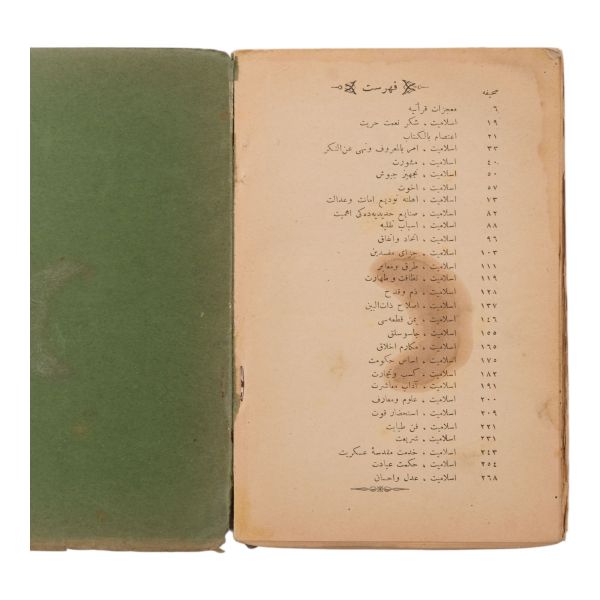 فهرست
صحیفه
٦ معجزات قرآنیه
١٩ اسلامیت ، شكر نعمت حریت
٢١ اعتصام بالكتاب
٣٣ اسلامیت ، امر بالمعروف ونهی عن‌المنكر
٤٠ اسلامیت ، مشورت
٥٠ اسلامیت ، تجهیز جیوش
٥٧ اسلامیت ، اخوت
٧٣ اسلامیت ، اهلنه تودیع امانت وعدالت
٨٢ اسلامیت ، صنایع حدیدیه‌ده‌كی اهمیت
٨٨ اسلامیت ، اسباب ظلیه
٩٦ اسلامیت ، اتحاد واتفاق
١٠٣ اسلامیت ، جزای مفسدین
١١١ اسلامیت ، طرق ومعابر
١١٩ اسلامیت ، نظافت وطهارت
١٢٨ اسلامیت ، ذم وقدح
١٣٧ اسلامیت ، اصلاح ذات‌البین
١٤٦ اسلامیت ، یمن قطعه‌سی
١٥٥ اسلامیت ، جاسوسلق
١٦٥ اسلامیت ، مكارم اخلاق
١٧٥ اسلامیت ، اساس حكومت
١٨٣ اسلامیت ، كسب وتجارت
١٩١ اسلامیت ، آداب معاشرت
٢٠٠ اسلامیت ، علوم ومعارف
٢٠٩ اسلامیت ، استحضار قوت
٢٢١ اسلامیت ، فن طبابت
٢٣١ اسلامیت ، شریعت
٢٤٣ اسلامیت ، خدمت مقدسهٔ عسكریت
٢٥٤ اسلامیت ، حكمت عبادت
٢٦٨ اسلامیت ، عدل واحسان